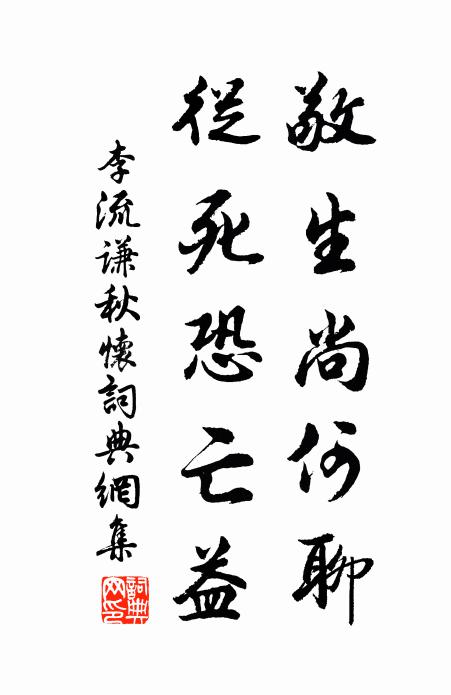 敬生尚何聊
從死恐亡益
李流谦秋懷詞典網集
詞典
网印